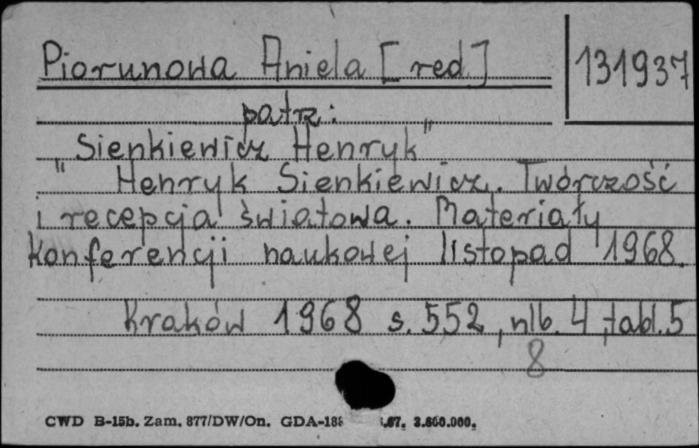 Piorunowa Aniela [red.] 131937
patrz:
Sienkiewicz Henryk"
" Henryk Sienkiewicz. Twórczość
i recepcja światowa. Materiały
Konferencji naukowej listopad 1968.
Kraków 1968 s. 552, nlb. 4, tabl. 5
8
CWD B-15b. Zam. 877/DW/On. GDA-188 .67. 3.600.000.